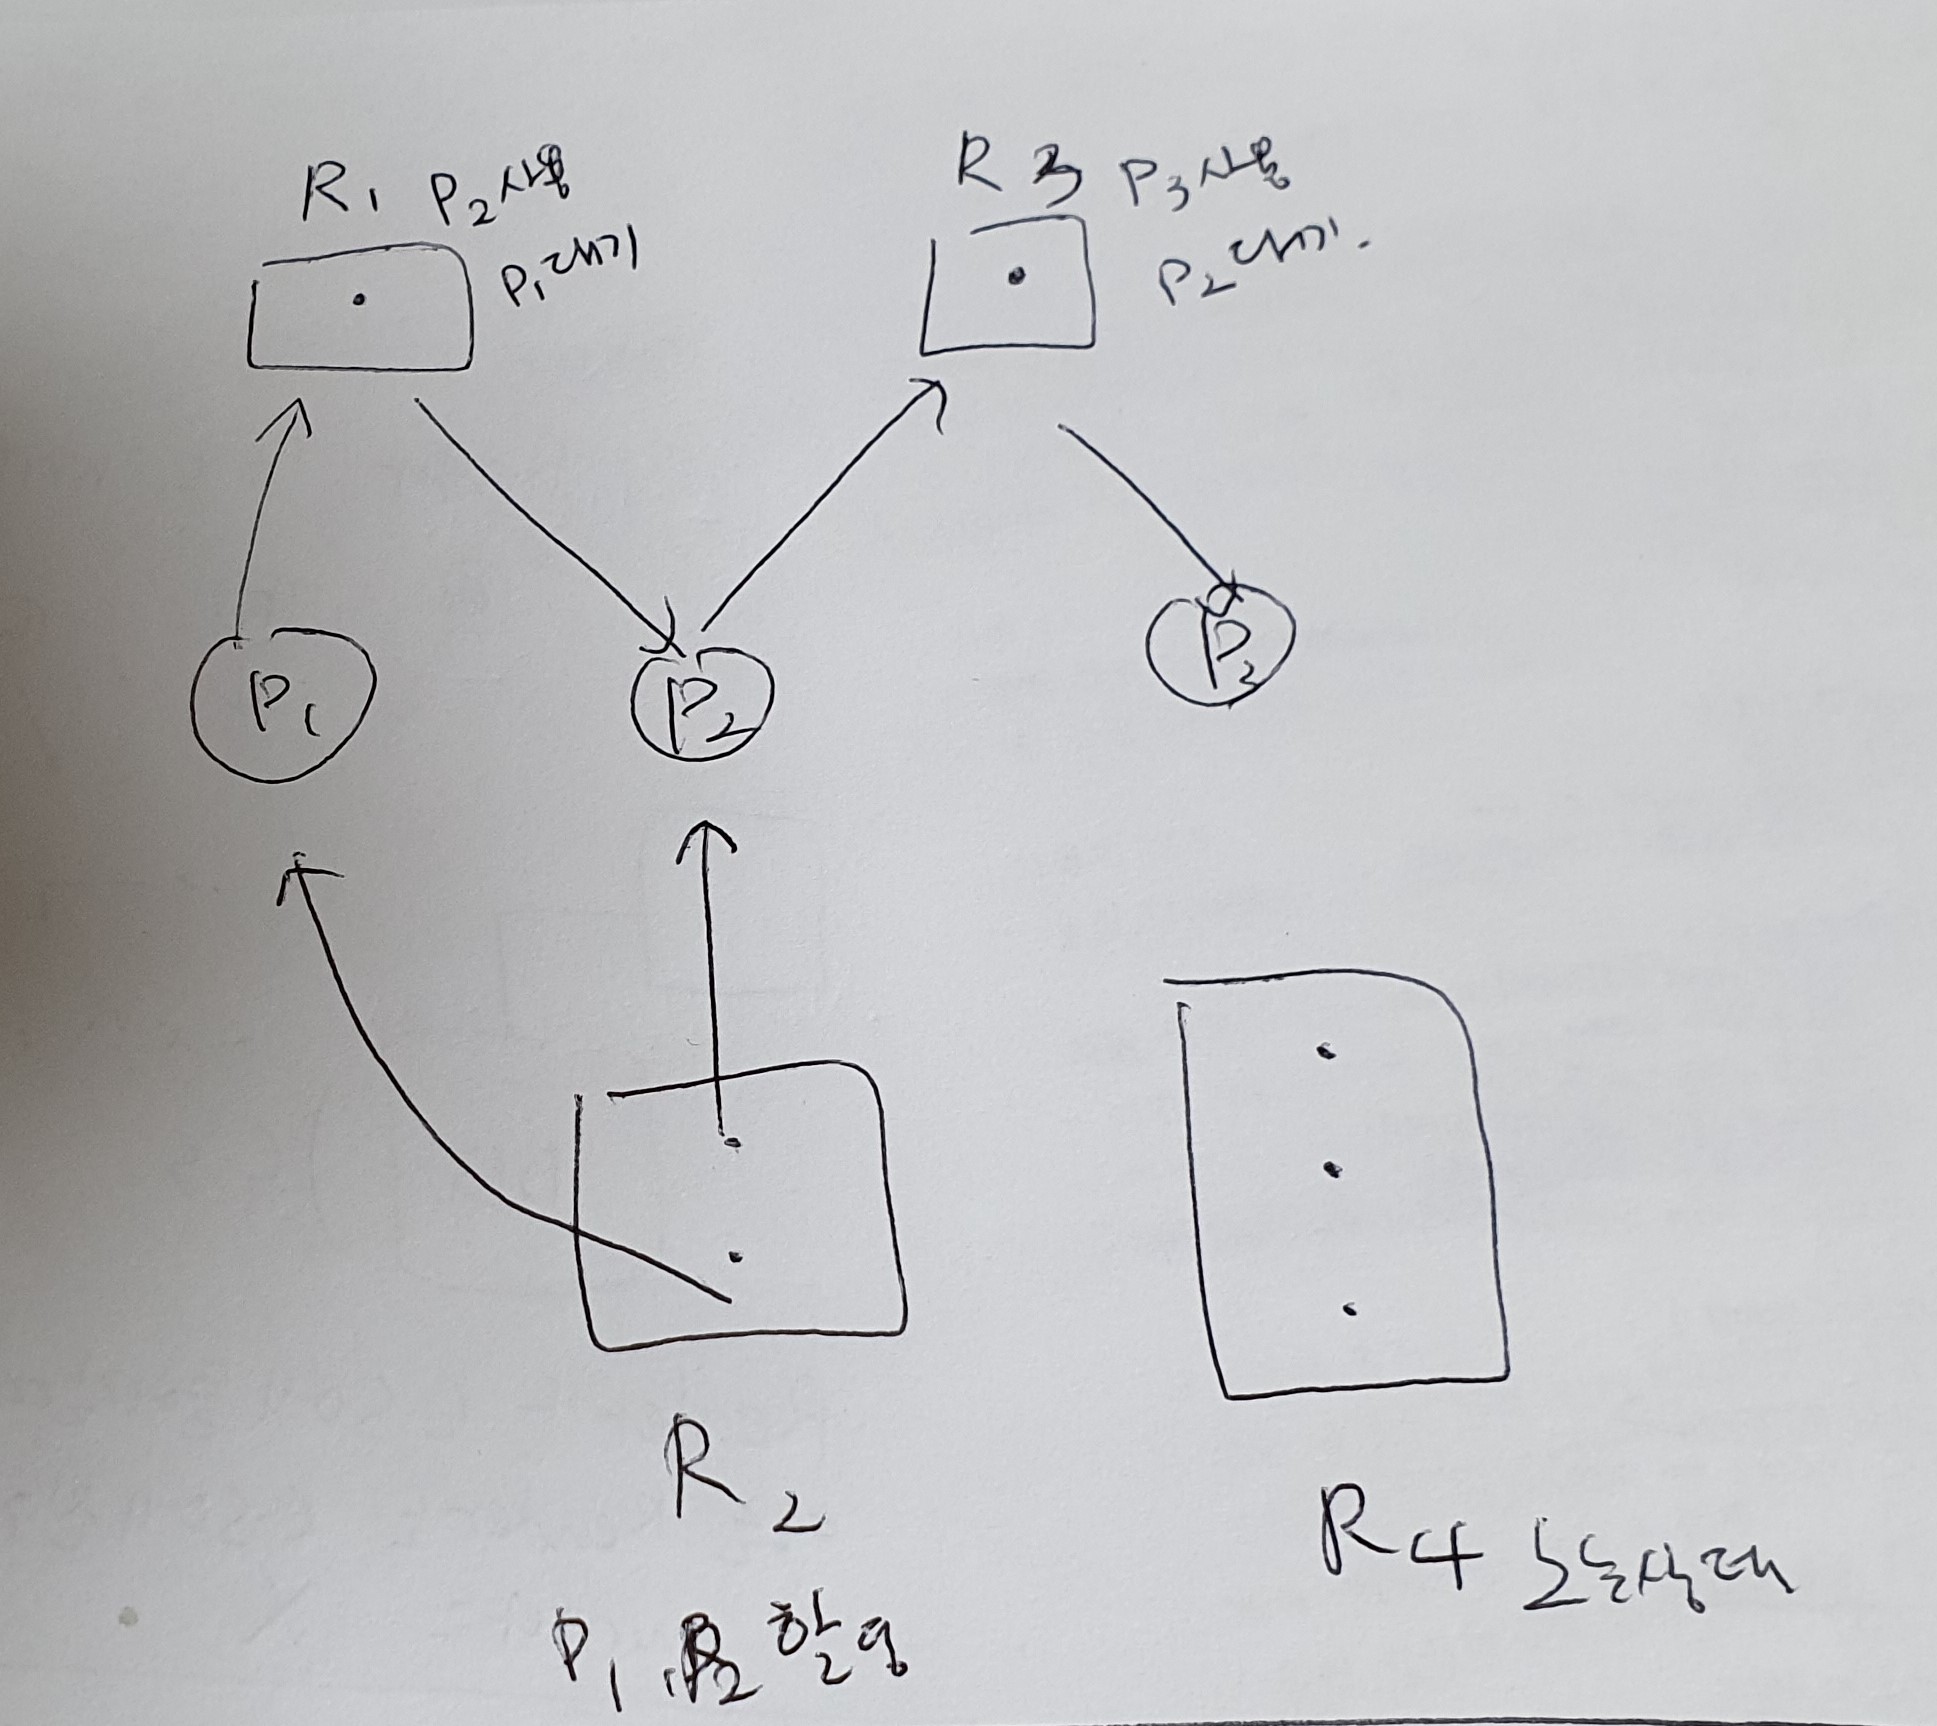 R1 P2 사용
P1 대기
R3 P3 사용
P2 대기.
P1
P2
P3
R2
P1, P2 할당
R4 노는상태